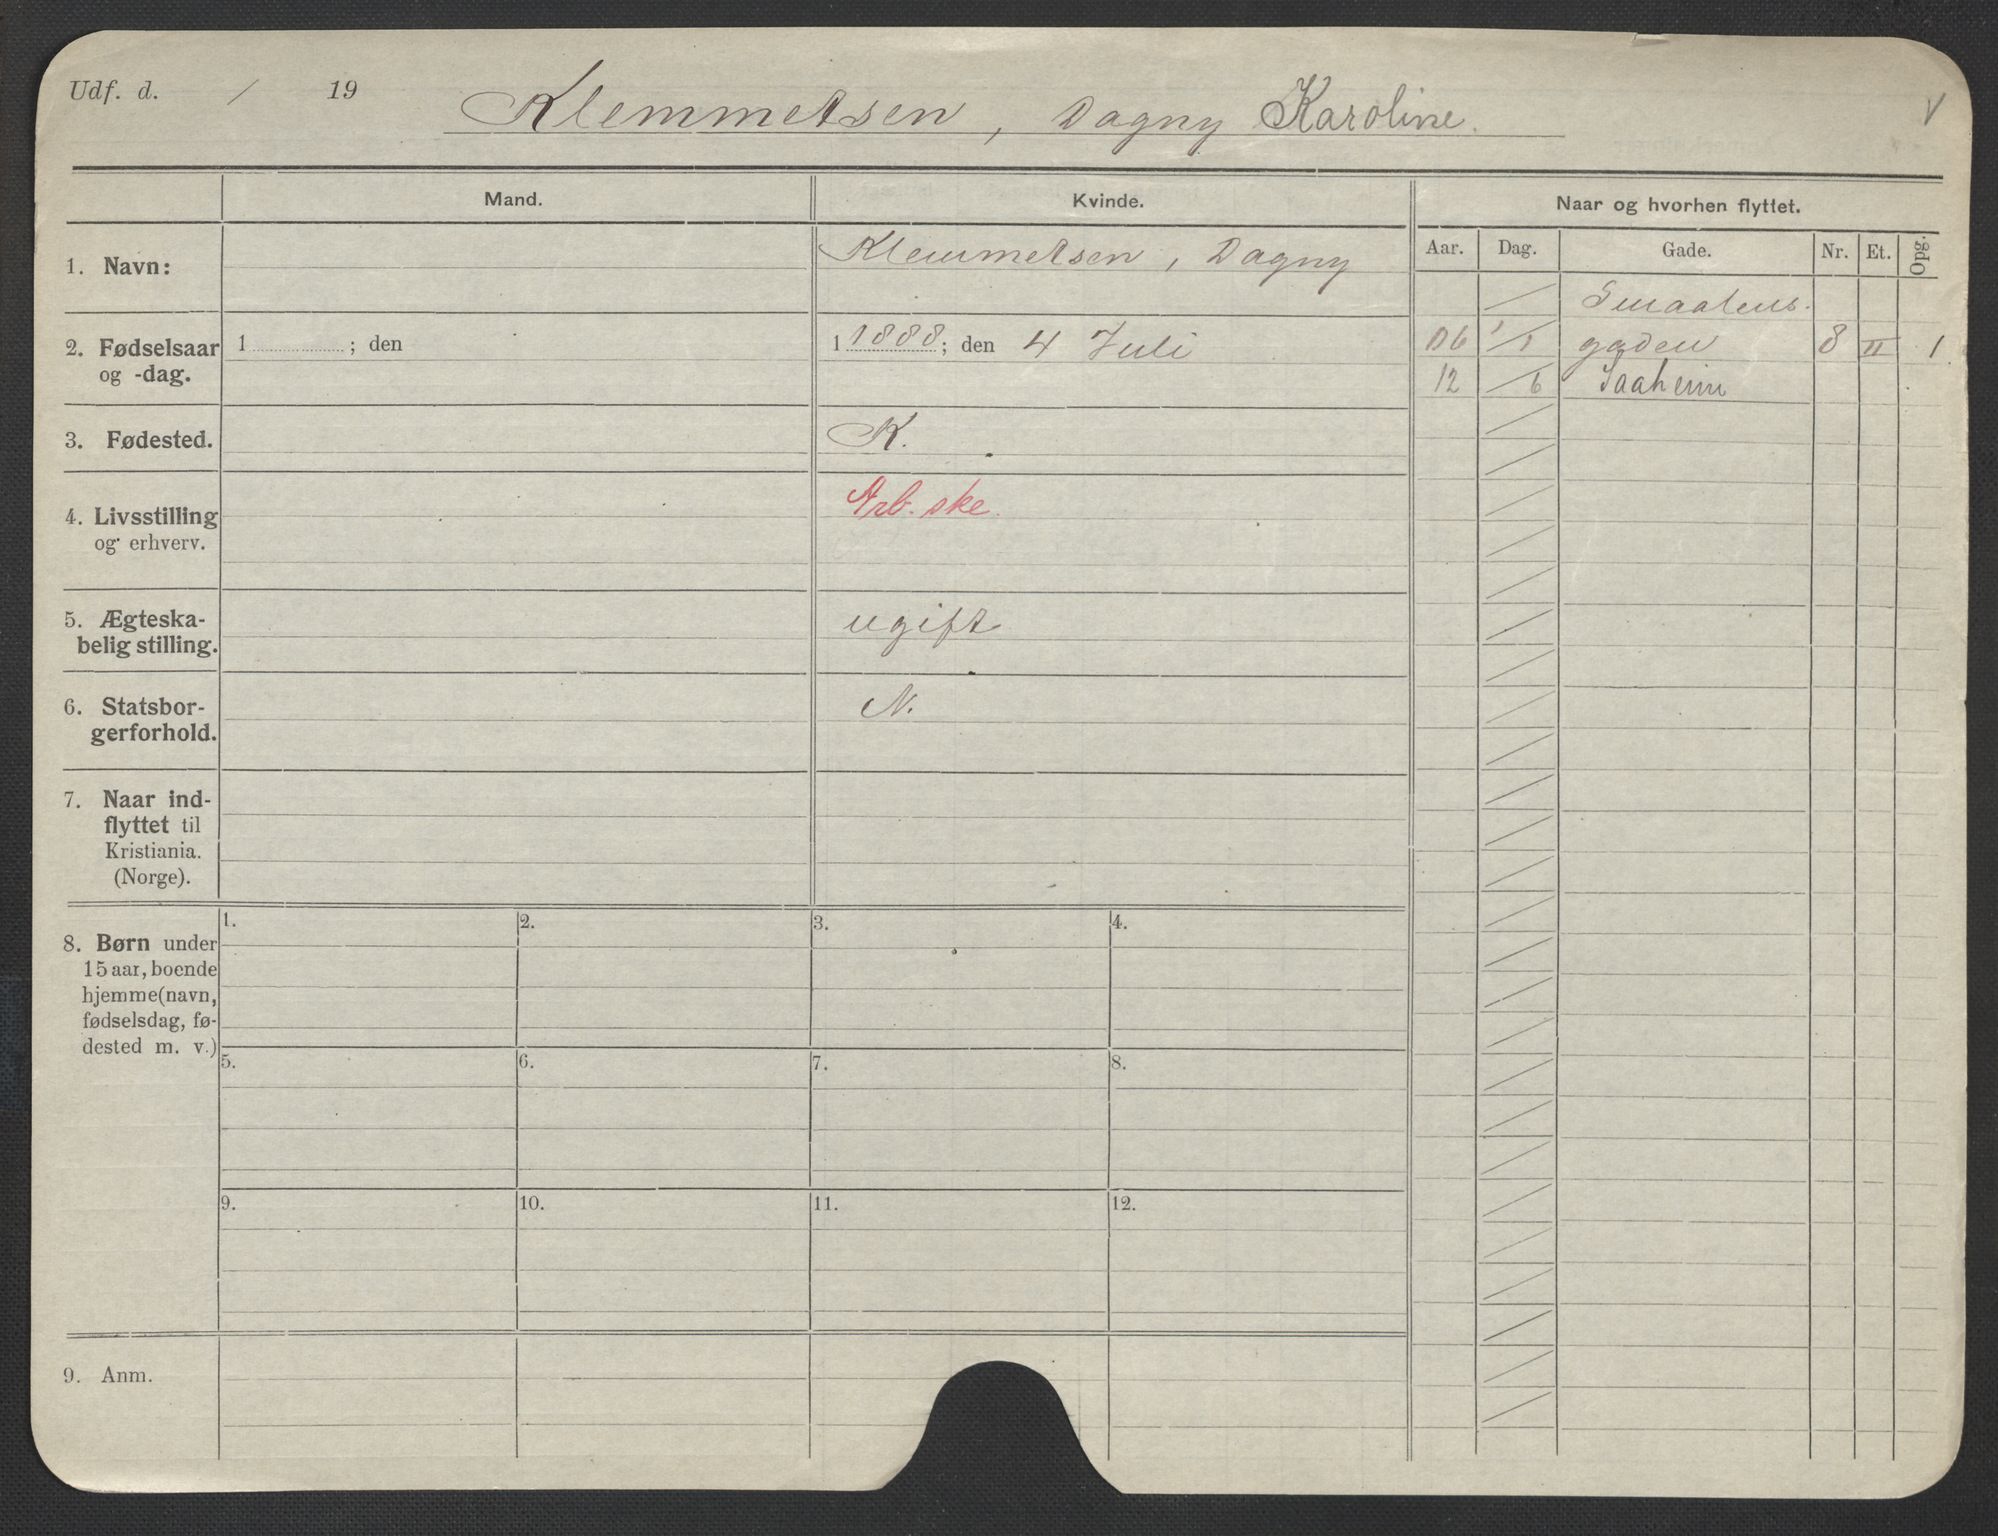 Udf. d. / 19
Klemmetsen, Dagny Karoline.
V
Mand.
Kvinde.
Naar og hvorhen flyttet.
Aar. Dag. Gade. Nr. Et. Opg.
1. Navn:
Klemmetsen, Dagny
Smaalens.
06 1/1 gaden 8 II 1
12 / 6 Saaheim
2. Fødselsaar
og -dag.
1 ; den
1 1888; den 4 Juli
3. Fødested.
K.
4. Livsstilling
og erhverv.
Arb. ske.
5. Ægteska-
belig stilling.
ugift
6. Statsbor-
gerforhold.
N.
7. Naar ind-
flyttet til
Kristiania.
(Norge).
8. Børn under
15 aar, boende
hjemme (navn,
fødselsdag, fø-
dested m. v.)
1. 2. 3. 4.
5. 6. 7. 8.
9. 10. 11. 12.
9. Anm.